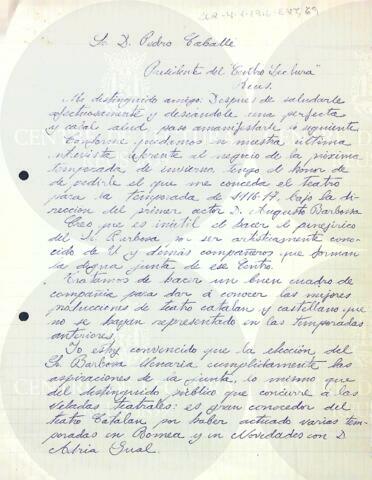 Sr. D. Pedro Caballé
Presidente del "Centro Lectura"
Reus.
Mi distinguido amigo: Despues de saludarle
afectuosamente y deseandole una perfecta
y cabal salud, paso a manifestarle lo siguiente
Conforme quedemos en nuestra última
intervista referente al negocio de la próxima
temporada de invierno, tengo el honor de
de pedirle el que me conceda el teatro
para la temporada de 1916-17, bajo la di-
rección del primer actor D. Augusto Barbosa
Creo que es inútil el hacer el panejirico
del Sr. Barbosa por ser artisticamente cono-
cido de V. y demás compañeros que forman
la digna junta de ese Centro.
Tratamos de hacer un buen cuadro de
compañia para dar á conocer las mejores
producciones de teatro catalan y castellano que
no se hayen representado en las temporadas
anteriores.
Yo estoy convencido que la elección del
Sr. Barbosa llenaria cumplidamente las
aspiraciones de la junta, lo mismo que
del distinguido público que concurre a las
veladas teatrales: es gran conocedor del
teatro Catalan por haber actuado varias tem-
poradas en Romea y en Novedades con D.
Adria Gual.